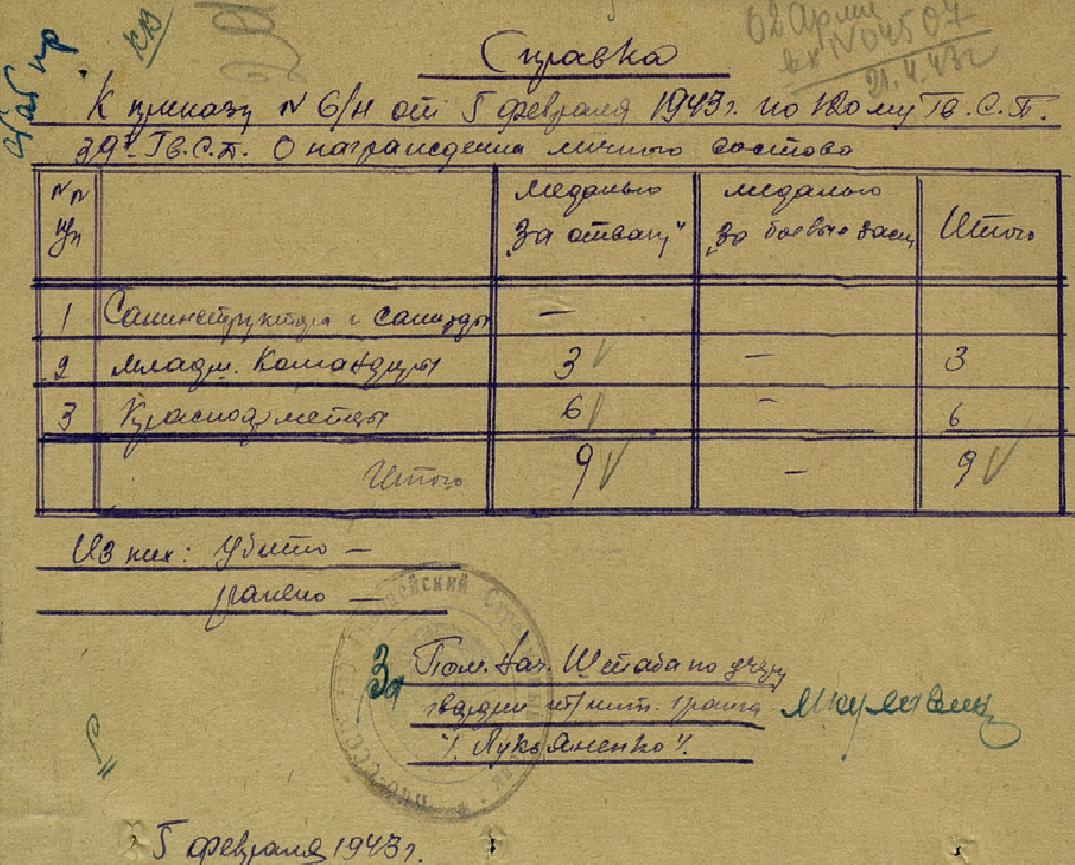 Справка
62 Арми
вх N 04507
21.4.43г
К приказу N б/н от 5 февраля 1943г. по 120му Гв. С.П.
39й Гв.С.Д. О награждении личного состава
NN п/п
медалью „За отвагу“
медалью „За боевые заслуг
Итого
1 Санинструктора и санитары —
2 Младш. Командиры 3 — 3
3 Красноармейцы 6 - 6
Итого 9 — 9
Из них: Убито —
ранено —
За Пом. Нач. Штаба по учету
гвардии инт. ранга
"/. Лукьяненко "/.
5 февраля 1943г.